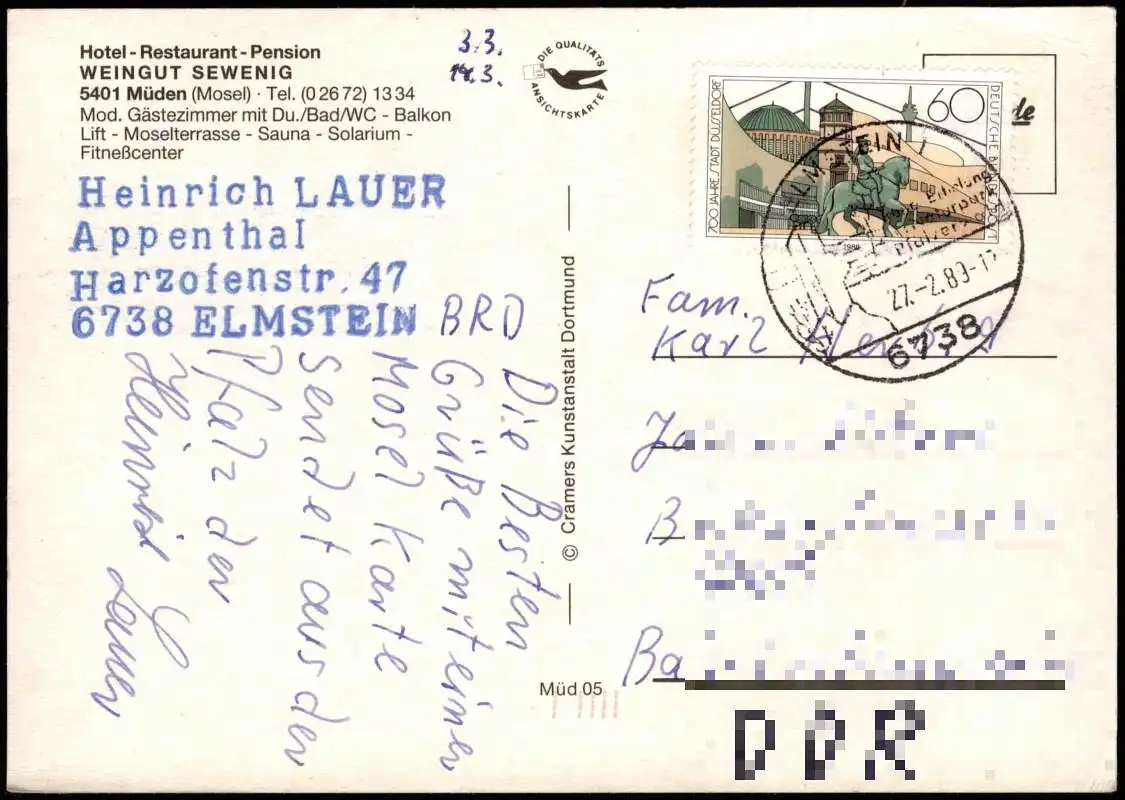 Hotel - Restaurant - Pension
WEINGUT SEWENIG
5401 Müden (Mosel) · Tel. (0 26 72) 13 34
Mod. Gästezimmer mit Du./Bad/WC - Balkon
Lift - Moselterrasse - Sauna - Solarium -
Fitneßcenter
3.3.
14.3.
DIE QUALITÄTS
ANSICHTSKARTE
Heinrich LAUER
Appenthal
Harzofenstr. 47
6738 ELMSTEIN BRD
Die Besten
Grüße mit einer
Mosel Karte
sendet aus der
Pfalz der
Heinrich Lauer
© Cramers Kunstanstalt Dortmund
Müd 05
700 JAHRE STADT DÜSSELDORF
60
DEUTSCHE BUNDESPOST
1988
ELMSTEIN
27.-2.89-17
6738
Fam.
Karl
DDR